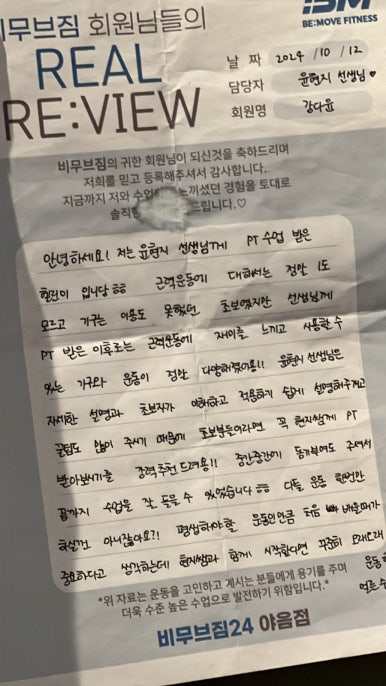 비무브짐 회원님들의
REAL
RE:VIEW
BM
BE:MOVE FITNESS
날 짜 2024 / 10 / 12
담당자 윤현지 선생님♥
회원명 강다윤
비무브짐의 귀한 회원님이 되신것을 축하드리며
저희를 믿고 등록해주셔서 감사합니다.
지금까지 저와 수업 느끼셨던 경험을 토대로
솔직한 드립니다.♡
안녕하세요! 저는 윤현지 선생님께 PT 수업 받은
헬린이 입니당 ㅎㅎ 근력운동에 대해서는 정말 1도
모르고 기구는 이용도 못했던 초보였지만 선생님께
PT 받은 이후로는 근력운동에 재미를 느끼고 사용할 수
있는 기구와 운동이 정말 다양해졌어용!! 윤현지 선생님은
자세한 설명과 초보자가 이해하고 적용하기 쉽게 설명해주시고
꿀팁도 많이 주시기 때문에 초보분들이라면 꼭 현지쌤께 PT
받아보시기를 강력추천 드려용!! 중간중간에 동기부여도 주셔서
끝까지 수업을 잘 들을 수 있었습니다 ㅎㅎ 다들 운동 한번만
하실건 아니잖아요?! 평생해야할 운동인만큼 처음 배울때가
중요하다고 생각하는데 현지쌤과 함께 시작한다면 꾸준히 오래오래
운동
*위 자료는 운동을 고민하고 계시는 분들에게 용기를 주며
더욱 수준 높은 수업으로 발전하기 위함입니다.*
비무브짐24 야음점